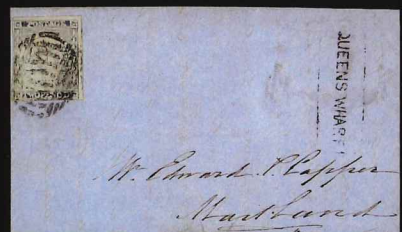 POSTAGE
QUEENS WHARF
Mr. Edward P. Capper
Maitland